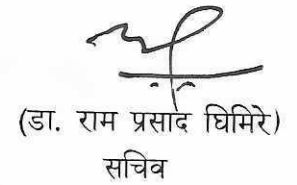 (डा. राम प्रसाद घिमिरे)
सचिव